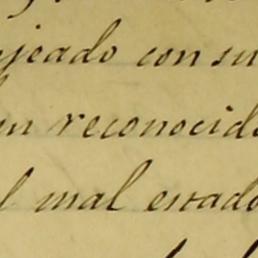 ejeado con su
un reconocido
l mal estado